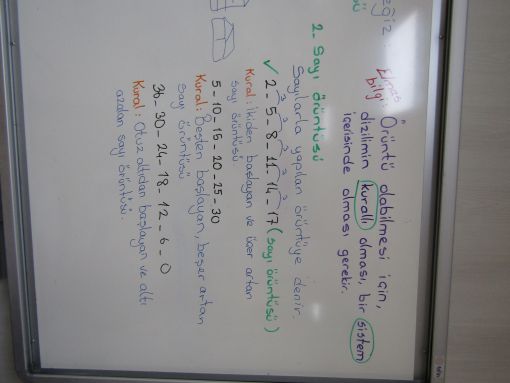 Elmas bilgi: Örüntü olabilmesi için,
dizilimin kurallı olması, bir sistem
içerisinde olması gerekir.
2- Sayı örüntüsü
Sayılarla yapılan örüntüye denir.
3 3 3 3 3
✓ 2-5-8-11-14-17 (sayı örüntüsü)
Kural: İkiden başlayan ve üçer artan
sayı örüntüsü.
5-10-15-20-25-30
Kural: Beşten başlayan, beşer artan
sayı örüntüsü
36-30-24-18-12-6-0
Kural: Otuz altıdan başlayan ve altı
azdan sayı örüntüsü.